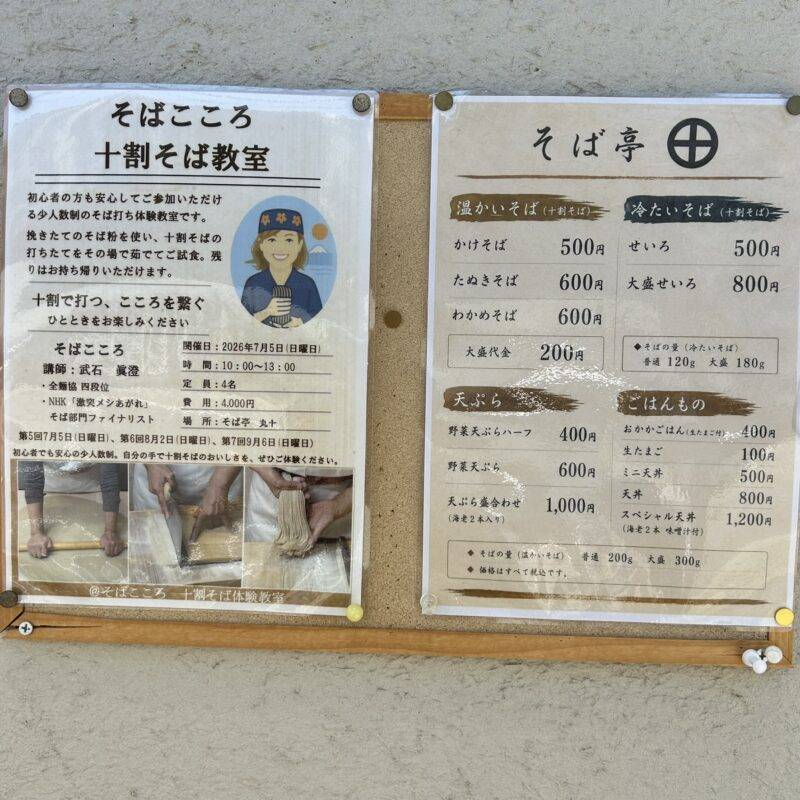 そばこころ
十割そば教室
初心者の方も安心してご参加いただけ
る少人数制のそば打ち体験教室です。
挽きたてのそば粉を使い、十割そばの
打ちたてをその場で茹でてご試食。残
りはお持ち帰りいただけます。
十割で打つ、こころを繋ぐ
ひとときをお楽しみください
そばこころ
講師：武石 眞澄
・全麺協 四段位
・NHK「激突メシあがれ」
そば部門ファイナリスト
開催日：2026年7月5日(日曜日)
時 間：10：00〜13：00
定 員：4名
費 用：4,000円
場 所：そば亭 丸十
第5回7月5日(日曜日)、第6回8月2日(日曜日)、第7回9月6日(日曜日)
初心者でも安心の少人数制。自分の手で十割そばのおいしさを、ぜひご体験ください。
@そばこころ 十割そば体験教室
そば亭
温かいそば（十割そば）
かけそば 500円
たぬきそば 600円
わかめそば 600円
大盛代金 200円
冷たいそば（十割そば）
せいろ 500円
大盛せいろ 800円
◆そばの量（冷たいそば）
普通 120g 大盛 180g
天ぷら
野菜天ぷらハーフ 400円
野菜天ぷら 600円
天ぷら盛合わせ 1,000円
(海老2本入り)
ごはんもの
おかかごはん(生たまご付) 400円
生たまご 100円
ミニ天丼 500円
天丼 800円
スペシャル天丼 1,200円
(海老2本 味噌汁付)
◆ そばの量（温かいそば） 普通 200g 大盛 300g
◆ 価格はすべて税込です。